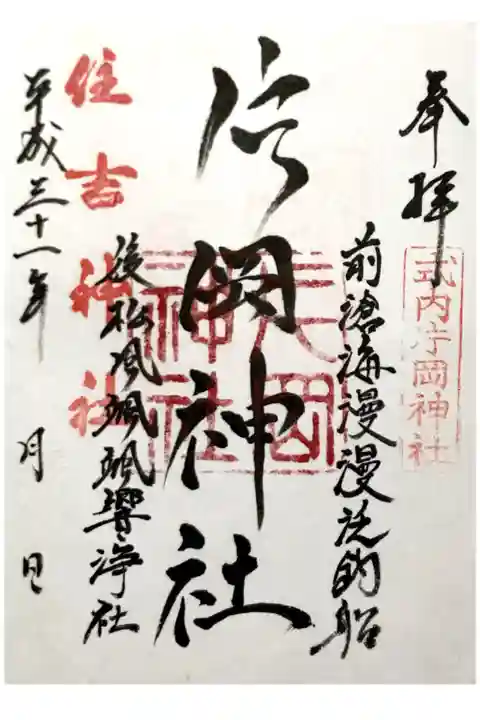 奉拝
式内片岡神社
前滄海漫漫茫的船
片岡神社
片岡神社
後松風颯颯響浄社
住吉神社
平成三十一年 月 日